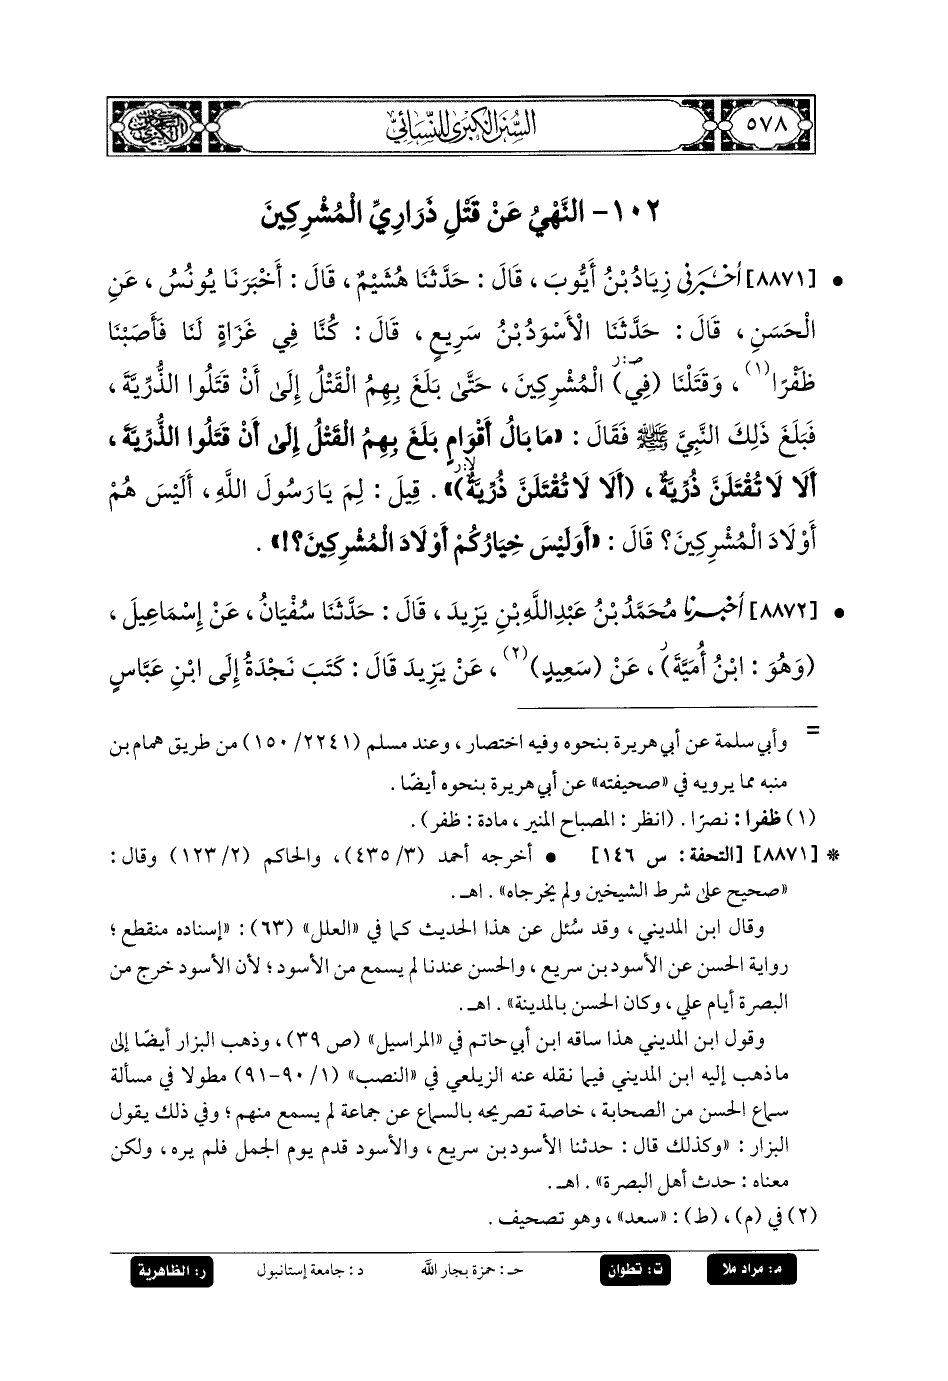 ٥٧٨
السُّنَنُ الكِبْرَىٰ لِلنِّسَائِيِّ
١٠٢- النَّهْيُ عَنْ قَتْلِ ذَرَارِيِّ الْمُشْرِكِينَ
• [٨٨٧١] أَخْبَرَنِي زِيَادُ بْنُ أَيُّوبَ، قَالَ: حَدَّثَنَا هُشَيْمٌ، قَالَ: أَخْبَرَنَا يُونُسُ، عَنِ
الْحَسَنِ، قَالَ: حَدَّثَنَا الْأَسْوَدُ بْنُ سَرِيعٍ، قَالَ: كُنَّا فِي غَزَاةٍ لَنَا فَأَصَبْنَا
ظَفْرًا(١)، وَقَتَلْنَا (فِي) الْمُشْرِكِينَ، حَتَّىٰ بَلَغَ بِهِمُ الْقَتْلُ إِلَىٰ أَنْ قَتَلُوا الذُّرِّيَّةَ،
فَبَلَغَ ذَلِكَ النَّبِيَّ ﷺ فَقَالَ: «مَا بَالُ أَقْوَامٍ بَلَغَ بِهِمُ الْقَتْلُ إِلَىٰ أَنْ قَتَلُوا الذُّرِّيَّةَ،
أَلَا لَا تُقْتَلَنَّ ذُرِّيَّةٌ، (أَلَا لَا تُقْتَلَنَّ ذُرِّيَّةٌ)». قِيلَ: لِمَ يَا رَسُولَ اللَّهِ، أَلَيْسَ هُمْ
أَوْلَادَ الْمُشْرِكِينَ؟ قَالَ: «أَوَلَيْسَ خِيَارُكُمْ أَوْلَادَ الْمُشْرِكِينَ؟!».
• [٨٨٧٢] أَخْبَرَنَا مُحَمَّدُ بْنُ عَبْدِ اللَّهِ بْنِ يَزِيدَ، قَالَ: حَدَّثَنَا سُفْيَانُ، عَنْ إِسْمَاعِيلَ،
(وَهُوَ: ابْنُ أُمَيَّةَ)، عَنْ (سَعِيدٍ)(٢)، عَنْ يَزِيدَ قَالَ: كَتَبَ نَجْدَةُ إِلَى ابْنِ عَبَّاسٍ
= وأبي سلمة عن أبي هريرة بنحوه وفيه اختصار، وعند مسلم (٢٢٤١/ ١٥٠) من طريق همام بن
منبه مما يرويه في «صحيفته» عن أبي هريرة بنحوه أيضًا.
(١) ظفرا: نصرًا. (انظر: المصباح المنير، مادة: ظفر).
* [٨٨٧١] [التحفة: س ١٤٦] • أخرجه أحمد (٣/ ٤٣٥)، والحاكم (٢/ ١٢٣) وقال:
«صحيح على شرط الشيخين ولم يخرجاه». اهـ.
وقال ابن المديني، وقد سُئل عن هذا الحديث كما في «العلل» (٦٣): «إسناده منقطع؛
رواية الحسن عن الأسود بن سريع، والحسن عندنا لم يسمع من الأسود؛ لأن الأسود خرج من
البصرة أيام علي، وكان الحسن بالمدينة». اهـ.
وقول ابن المديني هذا ساقه ابن أبي حاتم في «المراسيل» (ص ٣٩)، وذهب البزار أيضًا إلى
ما ذهب إليه ابن المديني فيما نقله عنه الزيلعي في «النصب» (١/ ٩٠-٩١) مطولا في مسألة
سماع الحسن من الصحابة، خاصة تصريحه بالسماع عن جماعة لم يسمع منهم؛ وفي ذلك يقول
البزار: «وكذلك قال: حدثنا الأسود بن سريع، والأسود قدم يوم الجمل فلم يره، ولكن
معناه: حدث أهل البصرة». اهـ.
(٢) في (م)، (ط): «سعد»، وهو تصحيف.
مـ: مراد ملا ت: تطوان حـ: حمزة بجار الله د: جامعة إستانبول ر: الظاهرية